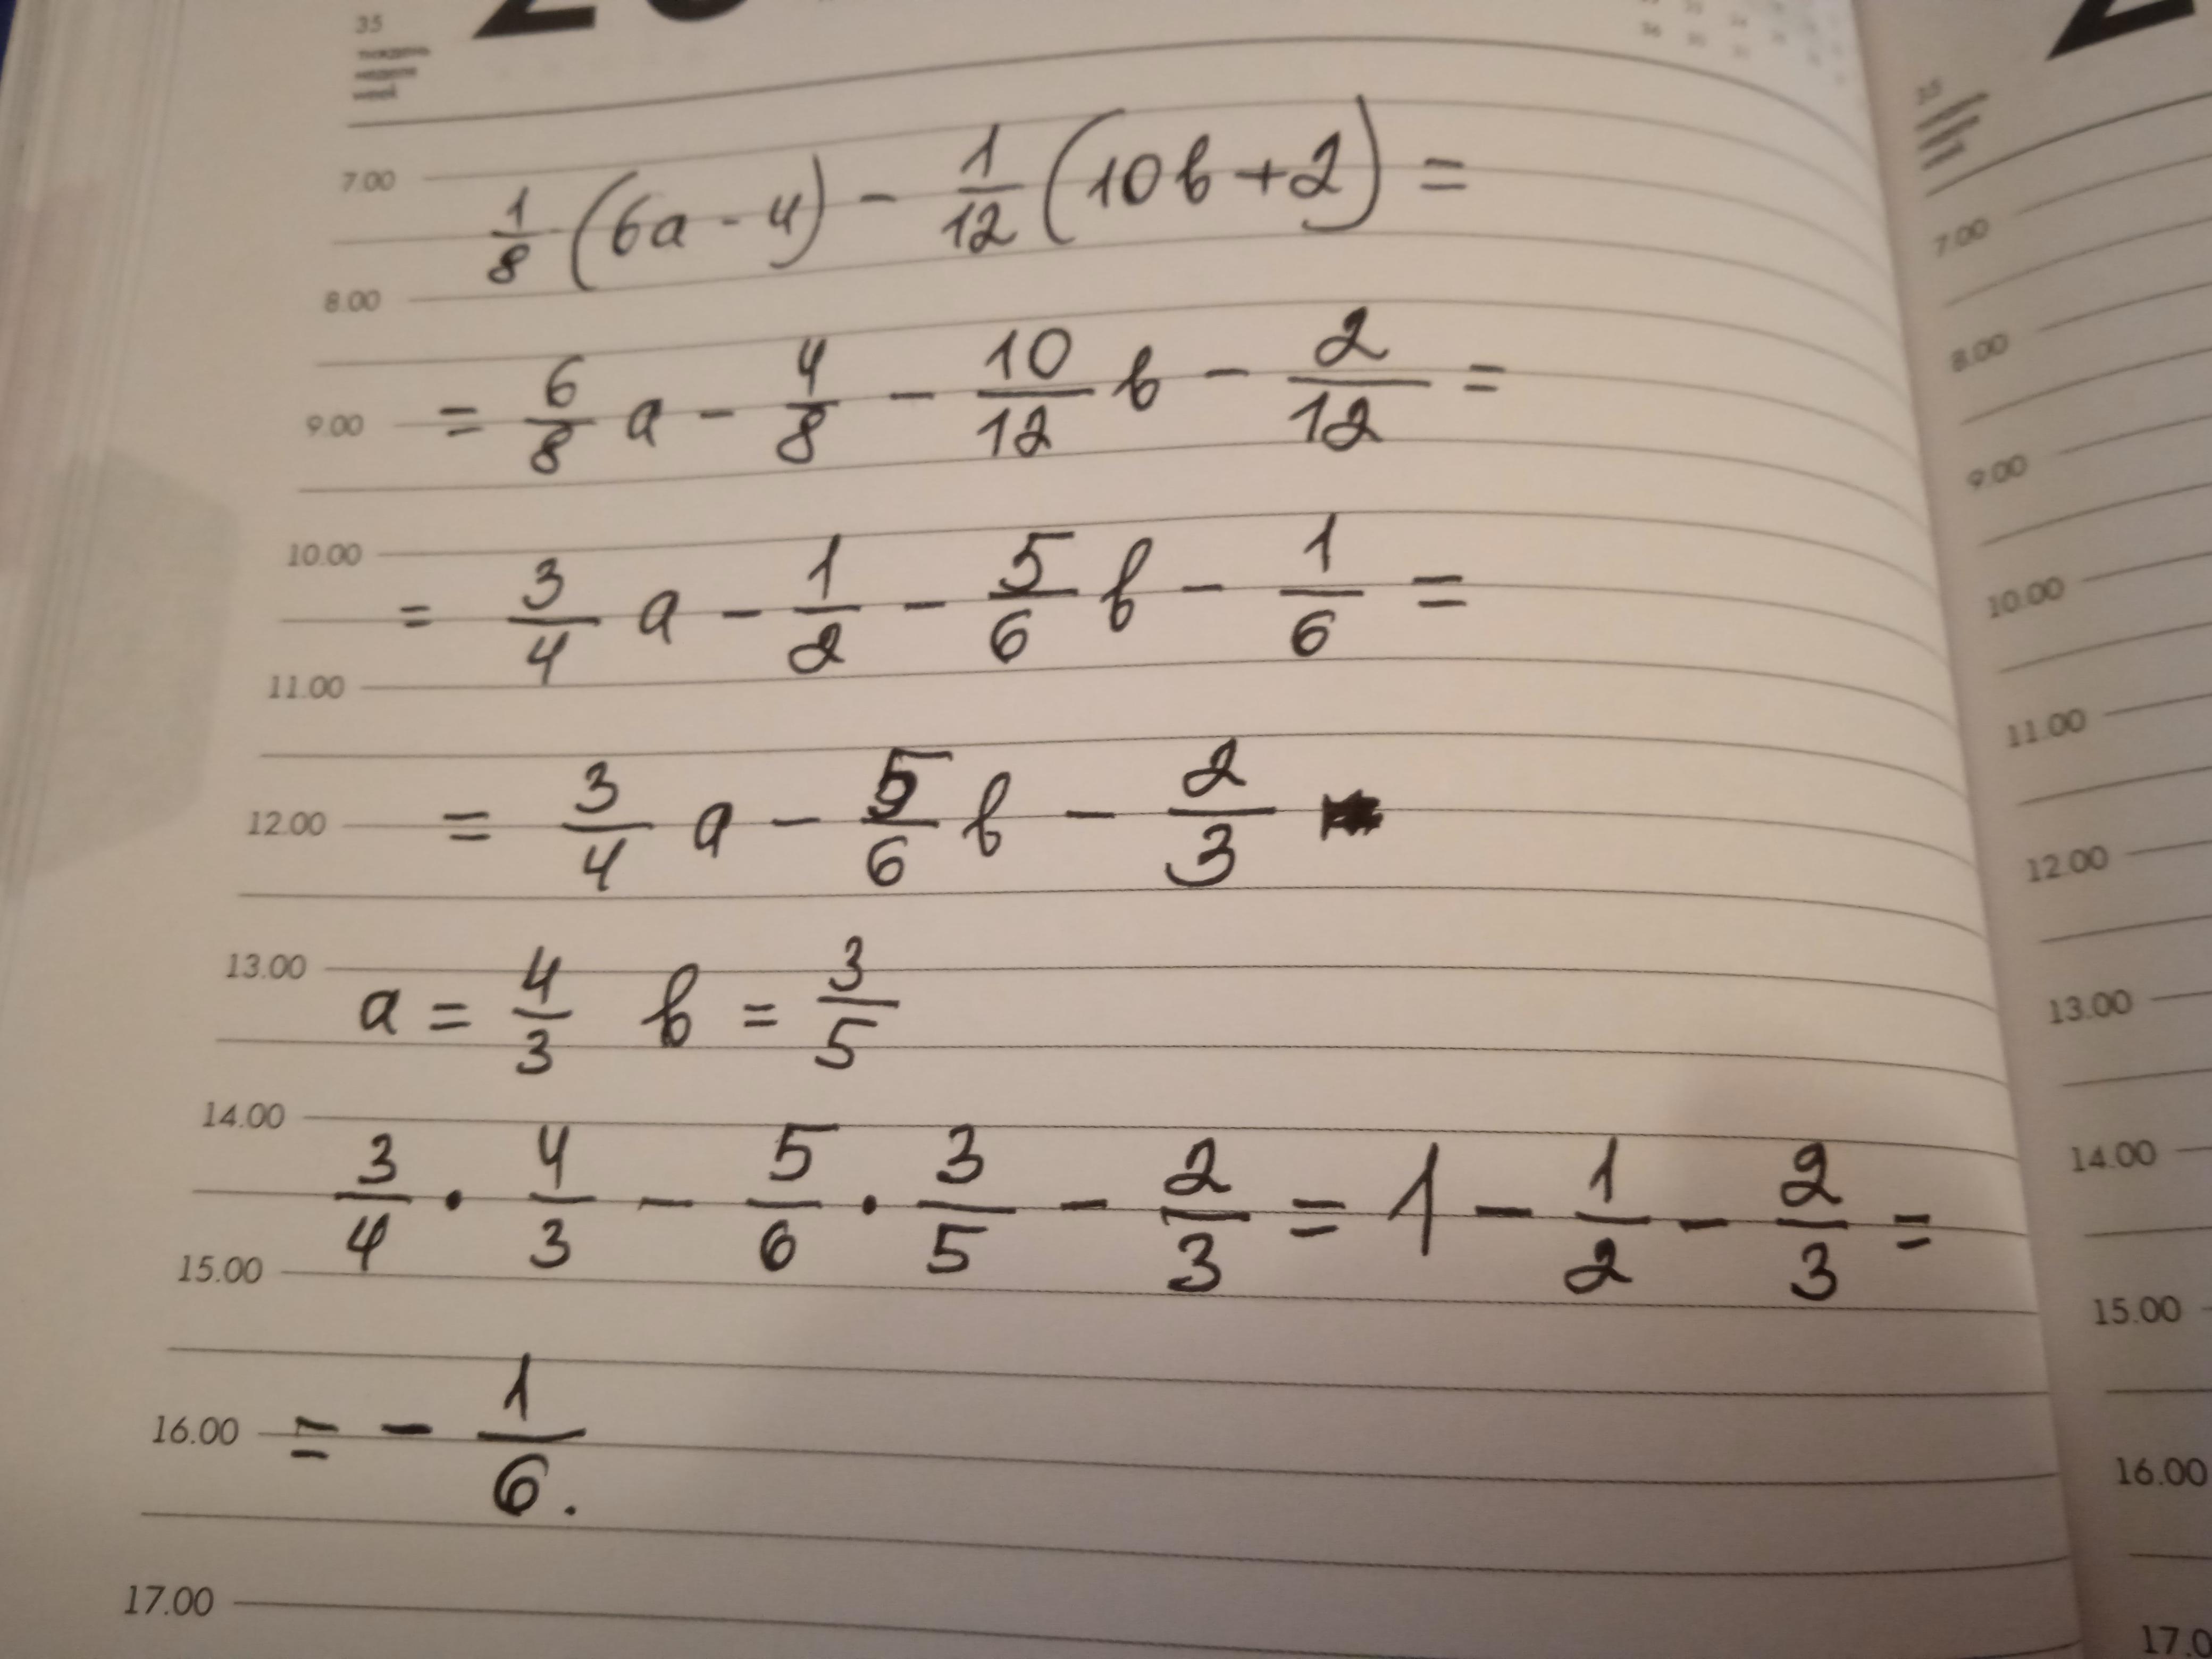 35
тиждень
неделя
week
7.00
1/8 (6a - 4) - 1/12 (10b + 2) =
8.00
9.00
= 6/8 a - 4/8 - 10/12 b - 2/12 =
10.00
= 3/4 a - 1/2 - 5/6 b - 1/6 =
11.00
12.00
= 3/4 a - 5/6 b - 2/3
13.00
a = 4/3 b = 3/5
14.00
3/4 · 4/3 - 5/6 · 3/5 - 2/3 = 1 - 1/2 - 2/3 =
15.00
16.00
= - 1/6.
17.00
35
7.00
8.00
9.00
10.00
11.00
12.00
13.00
14.00
15.00
16.00
17.0